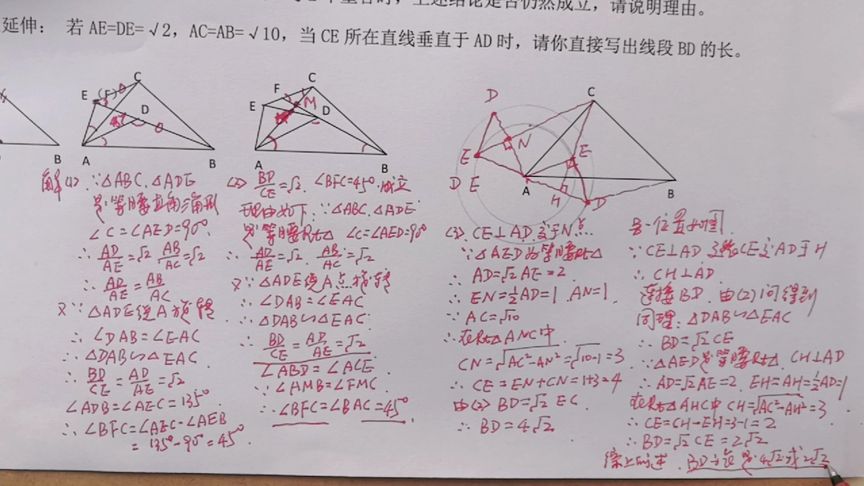 上述结论是否仍然成立，请说明理由。
延伸： 若 AE=DE=√2，AC=AB=√10，当 CE 所在直线垂直于 AD 时，请你直接写出线段 BD 的长。
C
E (F)
D
A
B
B
C
F
M
E
D
A
B
D
C
E
N
E
D E
A
H
D
B
解(1) ∵△ABC、△ADE
是等腰直角三角形
∠C=∠AED=90°
∴ AD/AE=√2 AB/AC=√2
∴ AD/AE = AB/AC
又∵△ADE绕A点旋转
∴ ∠DAB=∠EAC
∴ △DAB∽△EAC
∴ BD/CE = AD/AE =√2
∠ADB=∠AEC=135°
∴ ∠BFC=∠AEC-∠AEB
= 135°-90°=45°
(2) BD/CE=√2. ∠BFC=45° 成立
理由如下: ∵△ABC、△ADE
是等腰Rt△ ∠C=∠AED=90°
∴ AD/AE=√2 AB/AC=√2
又∵ △ADE绕A点旋转
∴ ∠DAB=∠EAC
∴ △DAB∽△EAC
∴ BD/CE = AD/AE =√2
∠ABD=∠ACE
∵ ∠AMB=∠FMC
∴ ∠BFC=∠BAC=45°
(3) CE⊥AD 交于N点
∵△AED为等腰Rt△
∴ AD=√2AE=2
∴ EN=½AD=1 AN=1
∵ AC=√10
∴ 在Rt△ANC中
CN=√AC²-AN²=√10-1=3
∴ CE=EN+CN=1+3=4
由(2) BD=√2 EC
∴ BD=4√2
另一位置如图
∵CE⊥AD 交CE于AD于H
∴ CH⊥AD
连接BD 由(2)问得到
同理: △DAB∽△EAC
∴ BD=√2CE
∵△AED是等腰Rt△ CH⊥AD
∴AD=√2AE=2 EH=AH=½AD=1
在Rt△AHC中 CH=√AC²-AH²=3
∴ CE=CH-EH=3-1=2
∴ BD=√2CE=2√2
综上所述 BD 是4√2或2√2